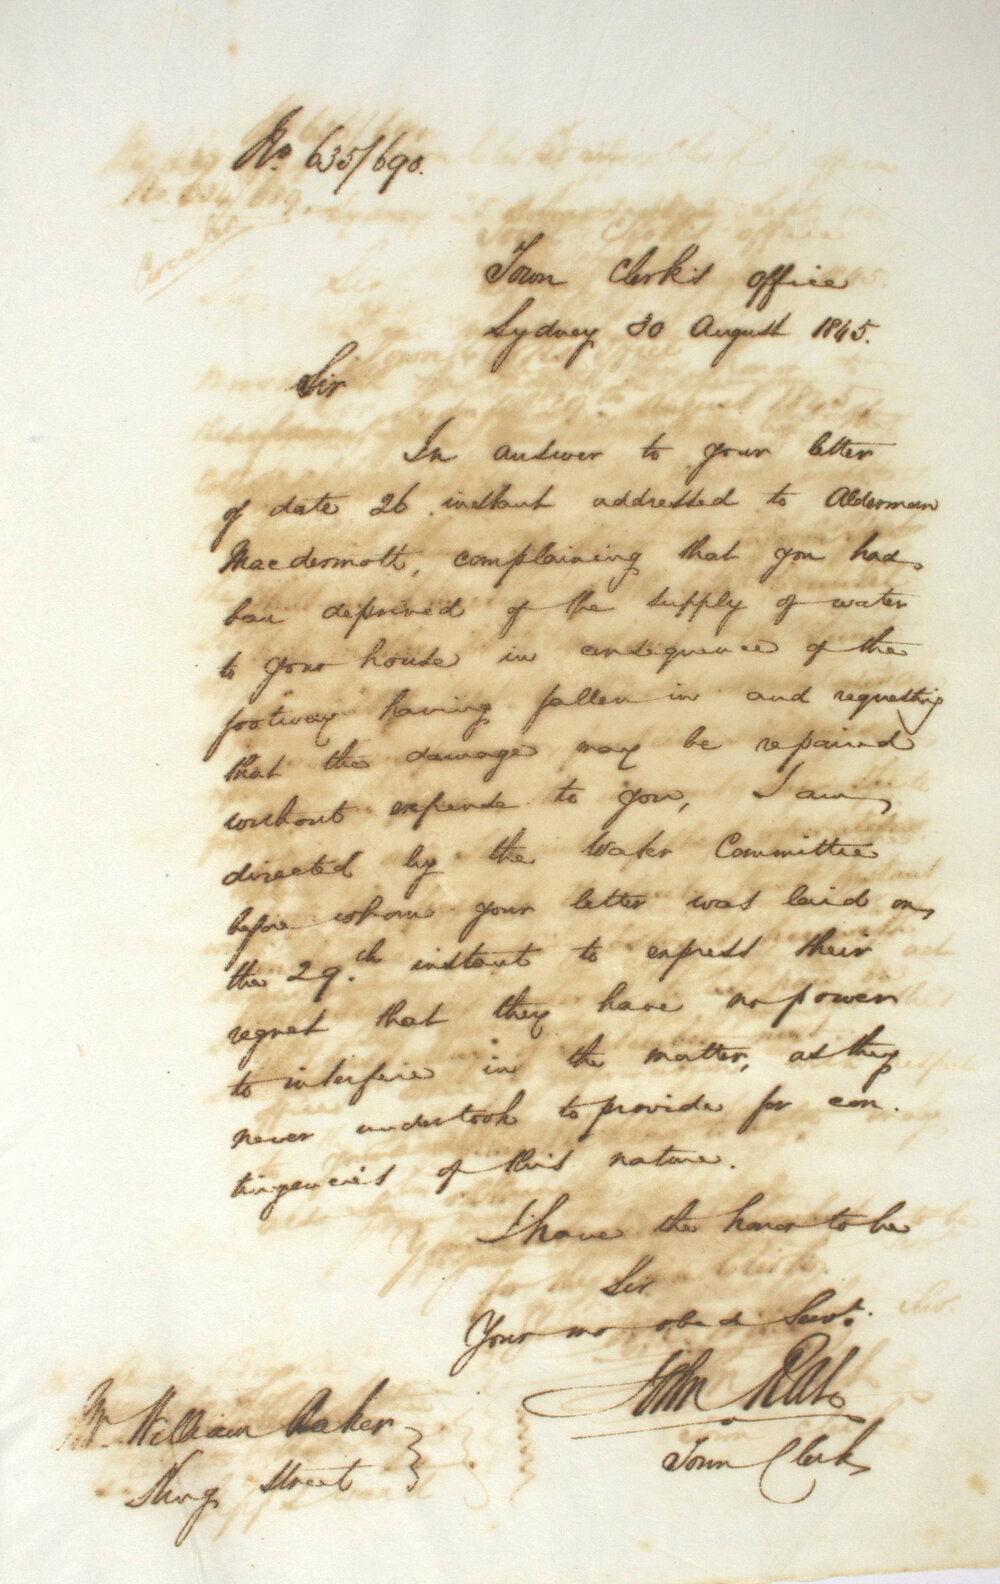 No. 635/690.
Town Clerk's office
Sydney 30 August 1845.
Sir
In answer to your letter
of date 26 instant addressed to Alderman
Macdermott, complaining that you had
been deprived of the supply of water
to your house in consequence of the
footway having fallen in and requesting
that the damage may be repaired
without expense to you, I am
directed by the Water Committee
before whom your letter was laid on
the 29.th instant to express their
regret that they have no power
to interfere in the matter, as they
never undertook to provide for con.
tingencies of this nature.
I have the honor to be
Sir
Your mo obed Servt.
John Rae
Town Clerk
Mr William Baker
King Street